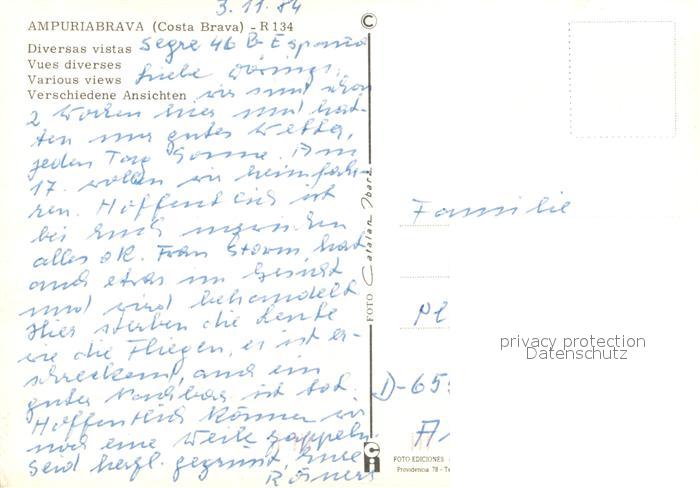 3.11.84
AMPURIABRAVA (Costa Brava) - R 134
Diversas vistas
Vues diverses
Various views
Verschiedene Ansichten
Segre 46 B España
Liebe
wir sind schon
2 Wochen hier und hat-
ten nur gutes Wetter,
jeden Tag Sonne. Am
17. wollen wir heimfah-
ren. Hoffentlich ist
bei Euch inzwischen
alles ok. Frau Storm hat
auch etwas im Gesicht
und wird behandelt
Hier sterben die Leute
wie die Fliegen, es ist er-
schreckend, auch ein
guter Nachbar ist tot.
Hoffentlich können wir
noch eine Weile zappeln
Seid herzl. gegrüsst, Eure
Römers
FOTO Catalan Ibarz
Familie
privacy protection
Datenschutz
D-65
FOTO EDICIONES
Providencia 78 - Te